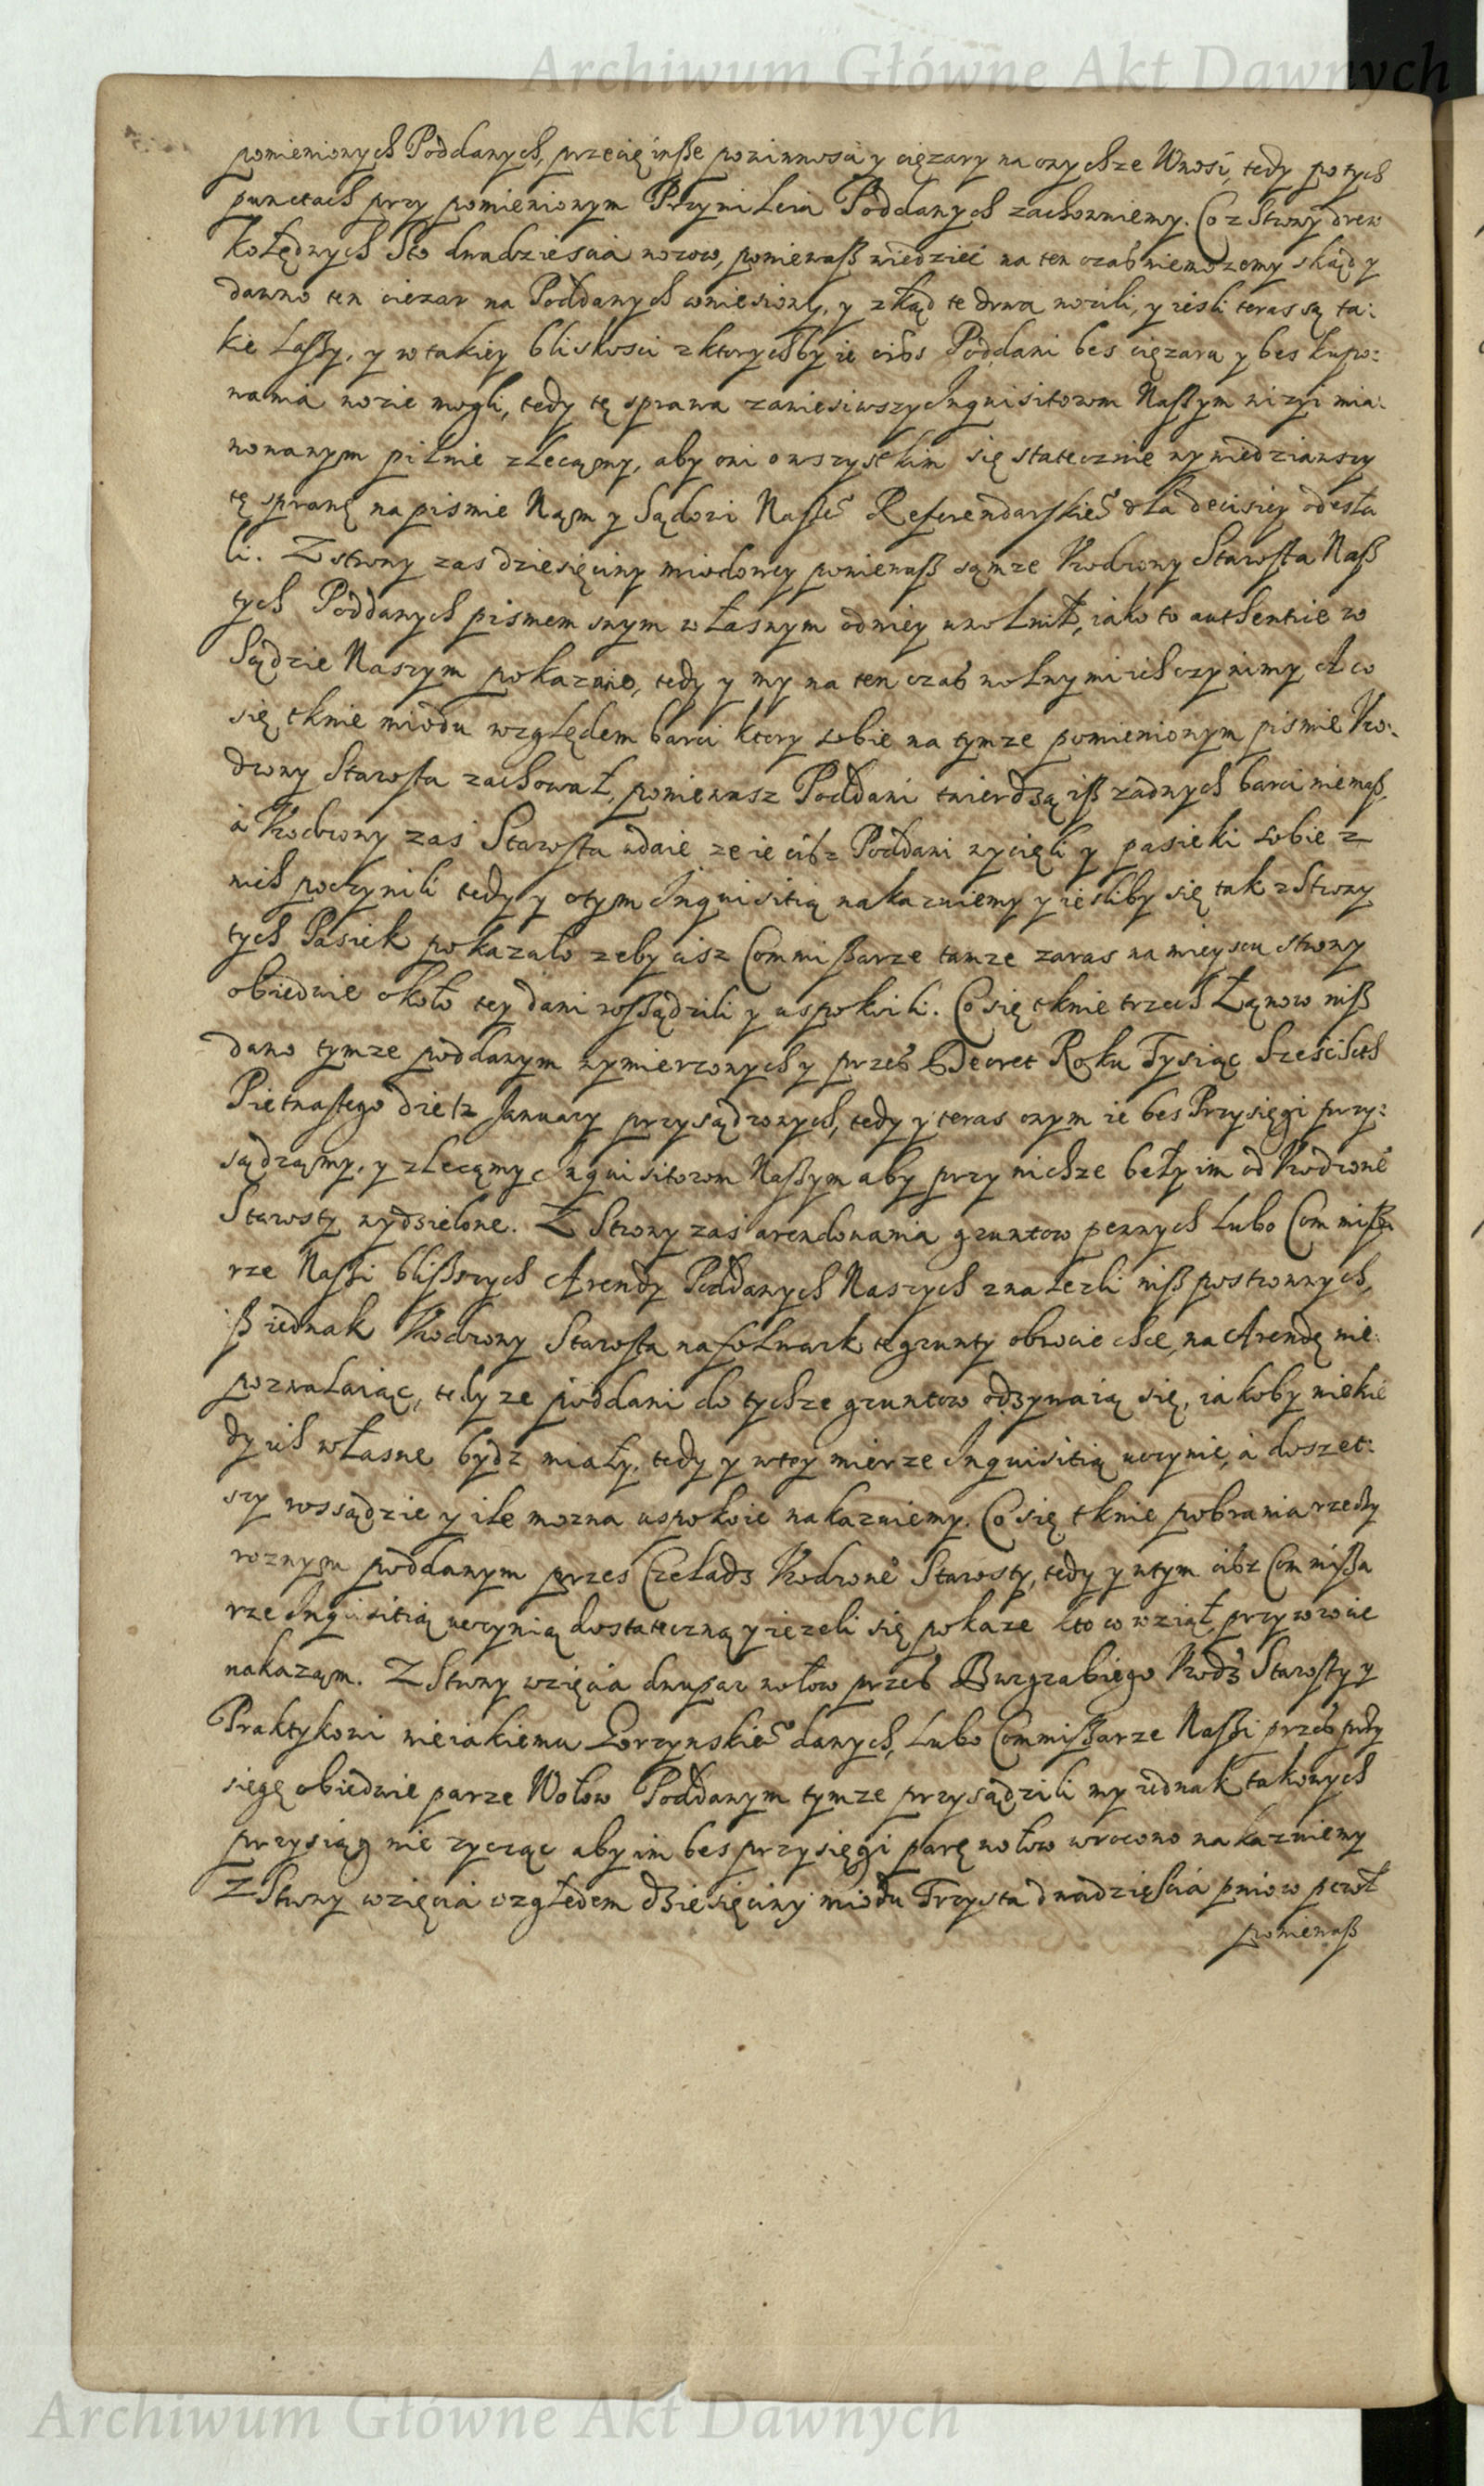 Archiwum Główne Akt Dawnych
pomienionych Poddanych, przecię insze powinnosci y cięzary na onychze Wnosi, tedy po tych
punctach przy pomienionym Przywileiu Poddanych zachowuiemy. Co z Strony drew
kolędnych Sto dwadziescia wozow, poniewasz wiedziec na ten czas niemozemy skąd y
dawno ten ciezar na Poddanych wniesiony, y zkąd te drwa wozili, y iesli teras są ta:
kie Lassy, y w takiey bliskosci z ktorychby ie cisz Poddani bes cięzaru y bes kupo:
wania wozic mogli, tedy tę sprawa zaniesiwszy Inquisitorom Naszym nizyi mia:
nowanym pilnie zlecamy, aby oni o wszystkim się statecznie wywiedziawszy
tę sprawę na pismie Nąm y Sądowi Nasze° Referendarskie° dla decisiey odesła
li. Z strony zas dziesięciny miodowey poniewasz sąmze Urodzony Starosta Nasz
tych Poddanych pismem swym własnym od niey uwolnił, iako to authentice w
Sądzie Naszym pokazano, tedy y my na ten czas wolnymi ich czynimy A co
się tknie miodu względem barci ktory sobie na tymze pomienionym pismie Uro:
dzony Starosta zachował, poniewasz Poddani twierdzą isz zadnych barci niemasz,
a Urodzony zas Starosta udaie ze ie cisz Poddani wycięli y pasieki sobie z
nich poczynili tedy y o tym Inquisitią nakazuiemy y iesliby się tak z Strony
tych Pasiek pokazało zeby cisz Commissarze tamze zaras na mieyscu strony
obiedwie około tey dani rossądzili y uspokoili. Co się tknie trzech Łąnow nisz
dawo tymze poddanym wymierzonych y przes Decret Roku Tysiąc Szescseth
Pietnastego die 12 January przysądzonych, tedy y teras onym ie bes Przysięgi przy:
sądząmy, y zlecąmy Inquisitorom Naszym aby przy nichze beły im od Urodzone°
Starosty wydzielone. Z Strony zas arendowania gruntow pewnych Lubo Commissa
rze Naszi bliszszych Arendy Poddanych Naszych znalezli nisz postronnych,
isz iednak Urodzony Starosta na folwark te grunty obrocic chce, na Arendę nie
pozwalaiąc, tedy ze poddani do tychze gruntow odzywaią się, iakoby niekie
dy ich własne bydz miały, tedy y w tey mierze Inquisitią uczynic, a doszet:
szy rossądzic y ile mozna uspokoic nakazuiemy. Co się tknie pobrania rzeczy
roznym poddanym przes Czeladz Urodzone° Starosty, tedy y w tym cisz Commissa
rze Inquisitią uczynią dostateczną y iezeli się pokaze kto co wziął, przywrocic
nakaząm. Z Strony wzięcia dwu par wołow przes Burgrabiego Urodz Starosty y
Praktykowi nieiakiemu Gorzynskie° danych, Lubo Commissarze Naszi przes przy
sięgę obiedwie parze Wołow Poddanym tymze przysądzili my iednak takowych
przysiąg nie zycząc aby im bes przysięgi parę wołow wrocono nakazuiemy
Z Strony wzięcia względem dziesięciny miodu Trzysta dwadzieścia pniow pczoł
poniewasz
Archiwum Główne Akt Dawnych